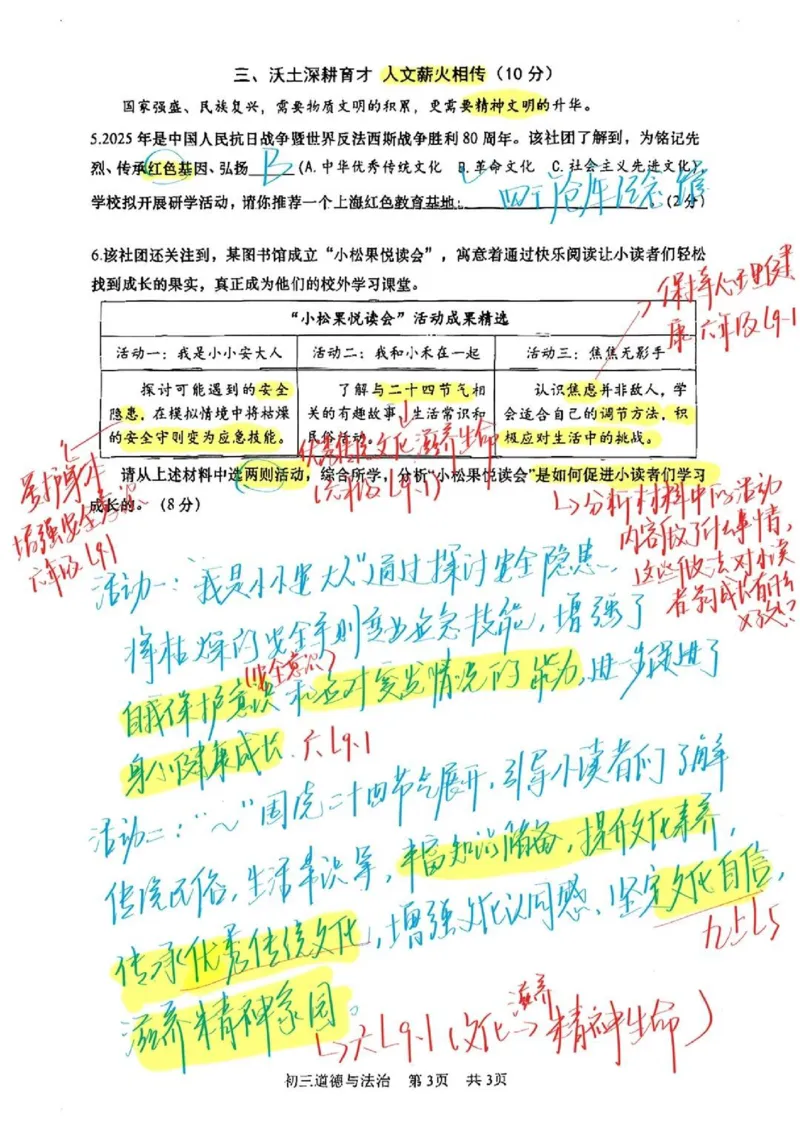 三、沃土深耕育才 人文薪火相传（10 分）
国家强盛、民族复兴，需要物质文明的积累，更需要精神文明的升华。
5.2025 年是中国人民抗日战争暨世界反法西斯战争胜利 80 周年。该社团了解到，为铭记先
烈、传承红色基因、弘扬 B （A. 中华优秀传统文化 B. 革命文化 C. 社会主义先进文化）
学校拟开展研学活动，请你推荐一个上海红色教育基地： 四行仓库纪念馆 （2 分）
6.该社团还关注到，某图书馆成立“小松果悦读会”，寓意着通过快乐阅读让小读者们轻松
找到成长的果实，真正成为他们的校外学习课堂。
保持心理健
康 六年级 L9-1
“小松果悦读会”活动成果精选
活动一：我是小小安大人
活动二：我和小禾在一起
活动三：焦焦无影手
探讨可能遇到的安全
隐患，在模拟情境中将枯燥
的安全守则变为应急技能。
了解与二十四节气相
关的有趣故事、生活常识和
民俗活动。
认识焦虑并非敌人，学
会适合自己的调节方法，积
极应对生活中的挑战。
优秀传统文化 滋养生命
（六年级 L9-1）
请从上述材料中选两则活动，综合所学，分析“小松果悦读会”是如何促进小读者们学习
成长的。（8 分）
增强安全意识
六年级 L9-1
分析材料中的活动
内容做了什么事情，
这些做法对小读
者的成长有什么
好处？
活动一：“我是小小安大人”通过探讨安全隐患、
将枯燥的安全守则变为应急技能，增强了
自我保护意识（安全意识）和应对突发情况的能力，进一步促进了
身心健康成长. 六 L9-1
活动二：“～”围绕二十四节气展开，引导小读者们了解
传统民俗，生活常识等，丰富知识储备，提升文化素养，
传承优秀传统文化，增强文化认同感、坚定文化自信，
九上L5
滋养精神家园。
六 L9-1（文化 滋养→ 精神生命）
初三道德与法治 第 3页 共 3页